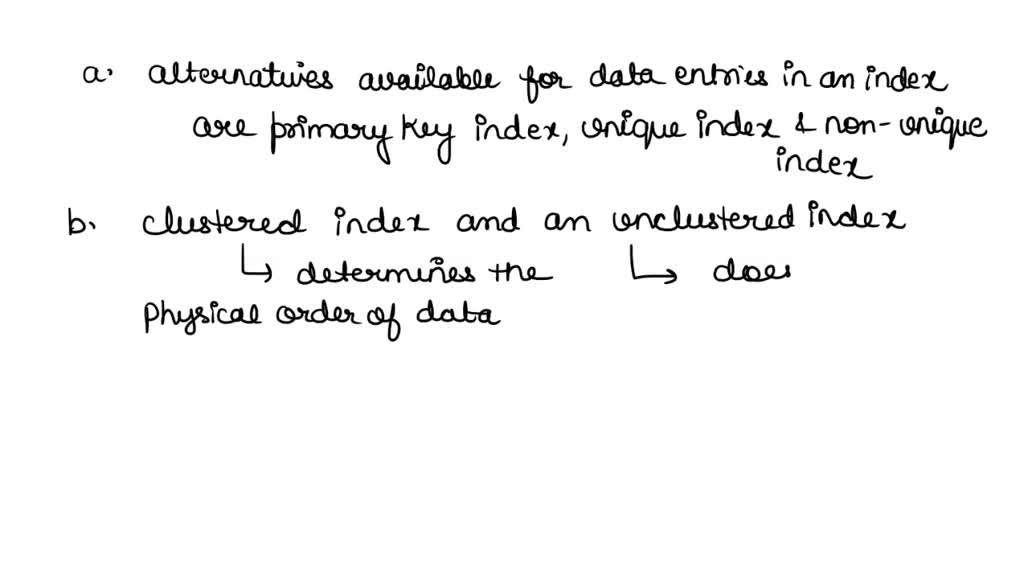 a. alternatives available for data entries in an index
are primary key index, unique index & non-unique
index
b. clustered index and an unclustered index
↳ determines the ↳ does
physical order of data